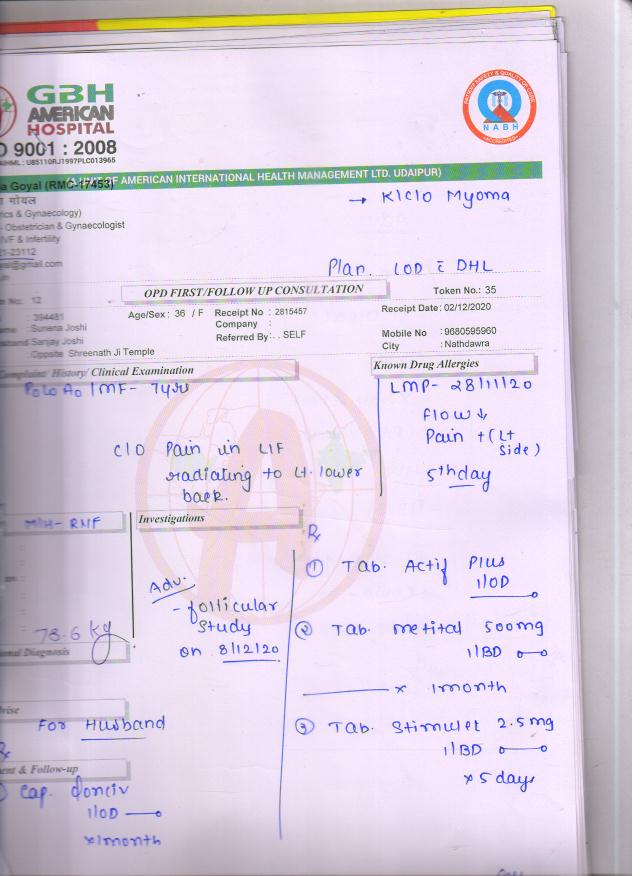 GBH
AMERICAN
HOSPITAL
9001 : 2008
U85110RJ1997PLC013965
PATIENT SAFETY & QUALITY OF CARE
NABH
ACCREDITED
OF AMERICAN INTERNATIONAL HEALTH MANAGEMENT LTD. UDAIPUR)
Goyal (RMC-17453)
गोयल
& Gynaecology)
- Obstetrician & Gynaecologist
& Infertility
23112
@gmail.com
→ K/C/O Myoma
Plan. LOD c̄ DHL
No: 12
OPD FIRST/FOLLOW UP CONSULTATION
Token No.: 35
: 394481
Age/Sex : 36 / F
Receipt No : 2815457
Receipt Date: 02/12/2020
: Sunena Joshi
Company :
Sanjay Joshi
Referred By: . . SELF
Mobile No : 9680595960
: Opposite Shreenath Ji Temple
City : Nathdawra
Complaint/ History/ Clinical Examination
Known Drug Allergies
PoLoAo | MF- 7yrs
LMP- 28/11/20
flow ↓
Pain + (Lt side)
5th day
C/O Pain in LIF
radiating to Lt. lower
back.
M/H- RNF
Investigations
Adv.
- follicular
Study
on 8/12/20
78.6 kg
Diagnosis
Rx
① Tab. Actif Plus
1 OD
② Tab. metital 500mg
1 BD
x 1month
③ Tab. Stimulet 2.5mg
1 BD
x 5 days
For Husband
& Follow-up
Cap.
1 OD
x 1month